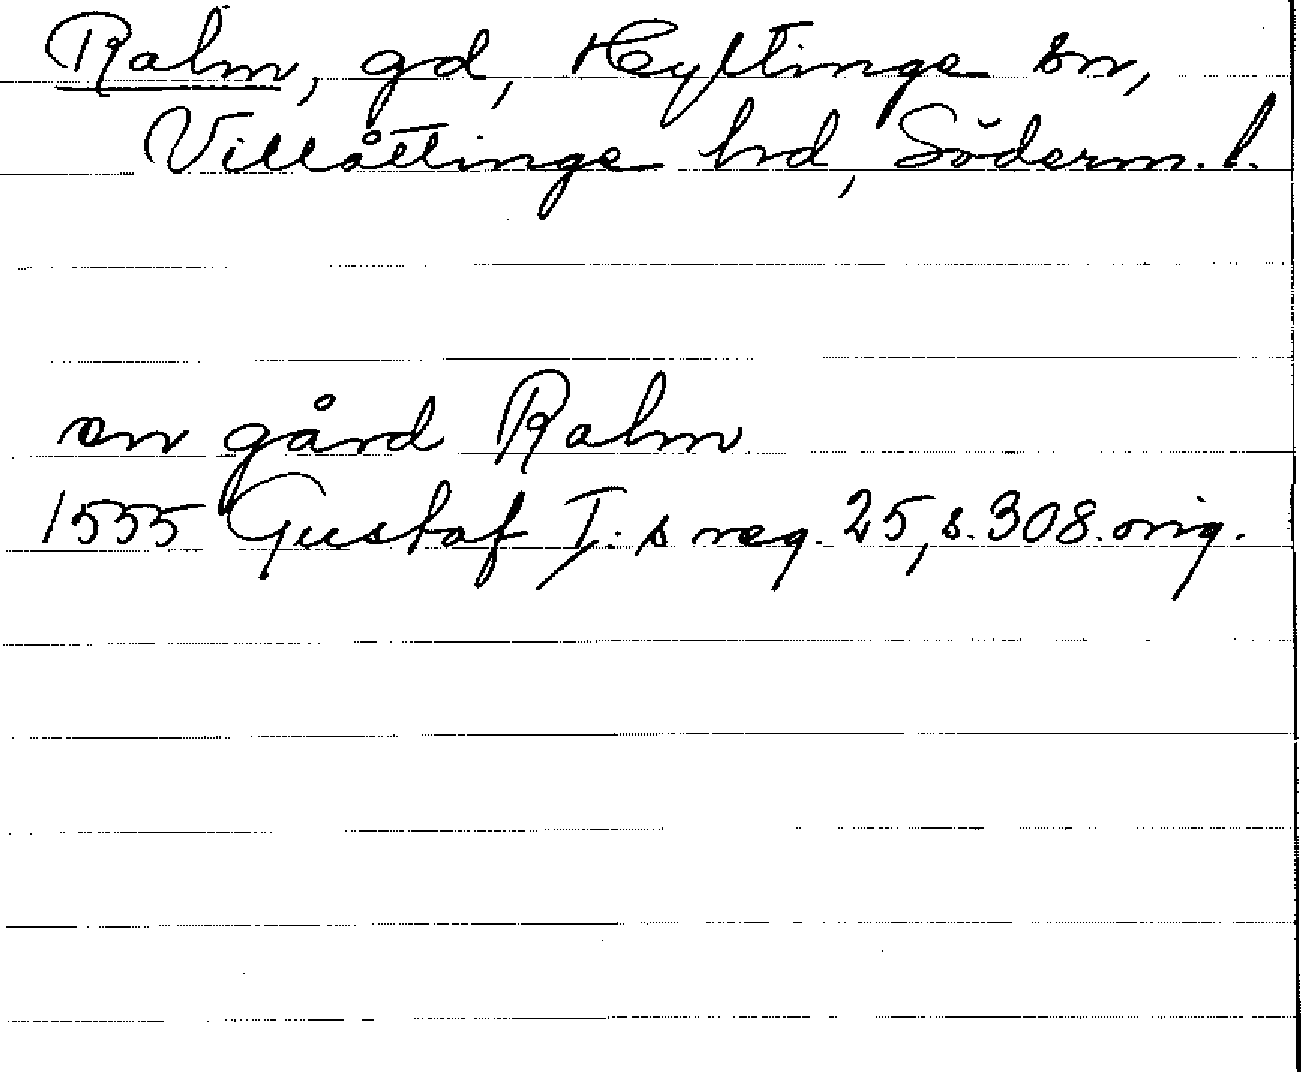 Rahm, gd, Hyltinge sn,
Villåttinge hd, Söderm. l.
en gård Rahm
1555 Gustaf I:s reg. 25, s. 308. orig.